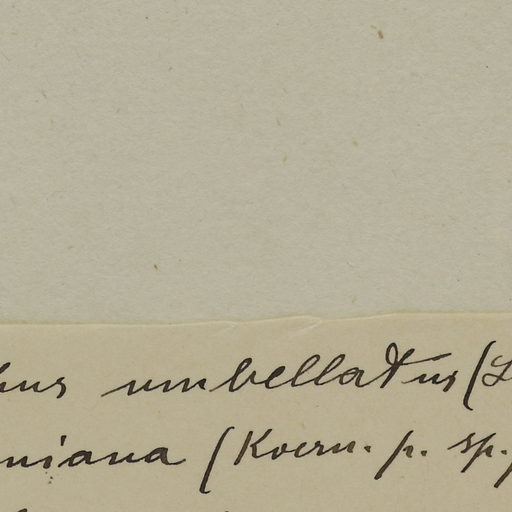 bus umbellatus (L
niana (Koern. p. sp.